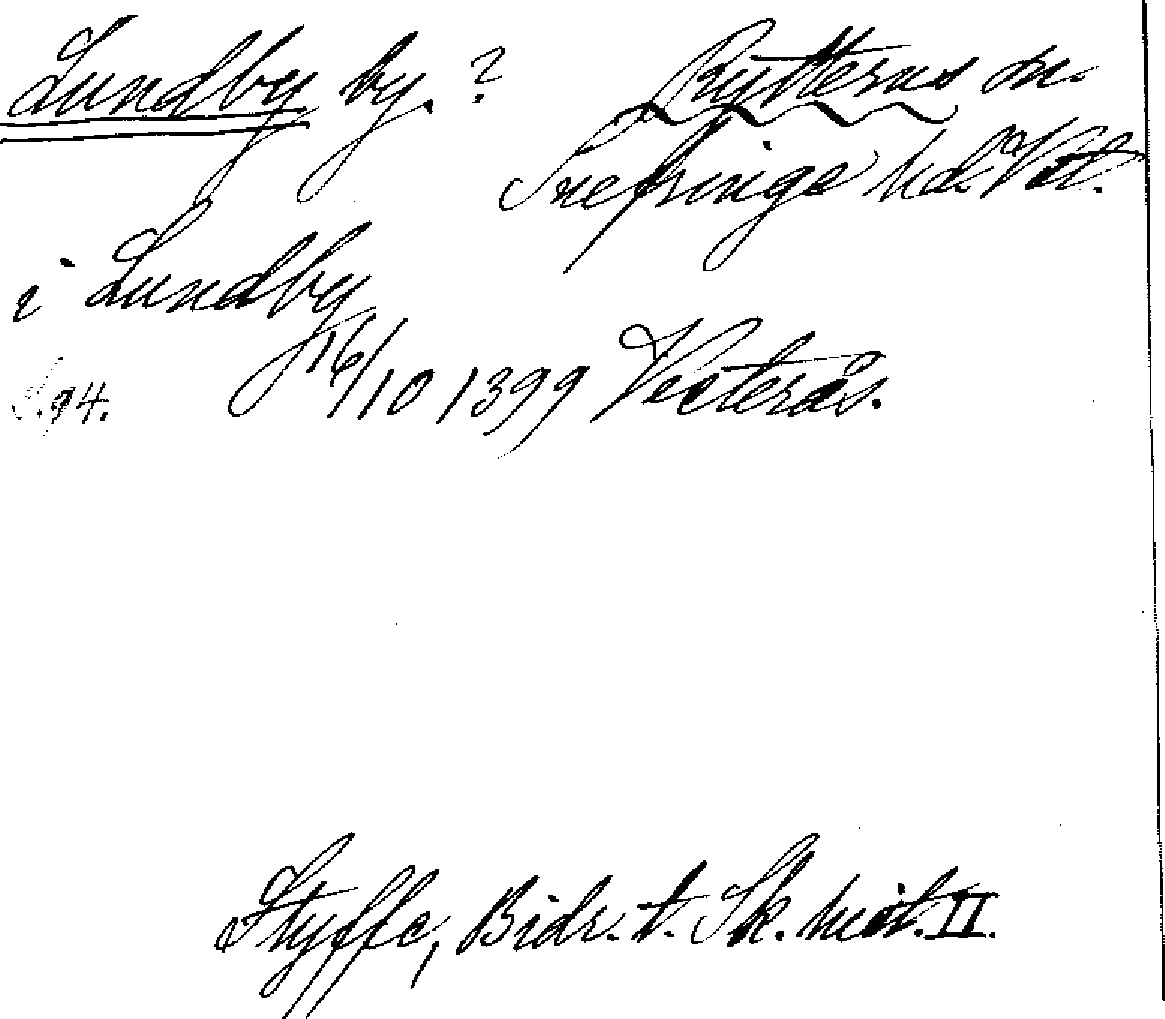 Lundby by. ? Rytterns sn.
Snefringe hd. Vstl.
i Lundby
S. 94. 16/10 1399 Vesterås.
Styffe, Bidr. t. Sk. hist. II.